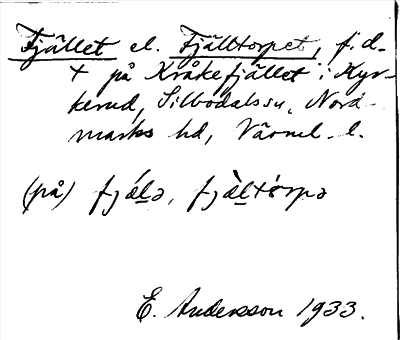 Fjället el. Fjälltorpet, f.d.
t på Kråkefjället i Kyr-
kerud, Silbodalssn, Nord-
marks hd, Värml. l.
(på) fjälə, fjältórpə
E. Andersson 1933.